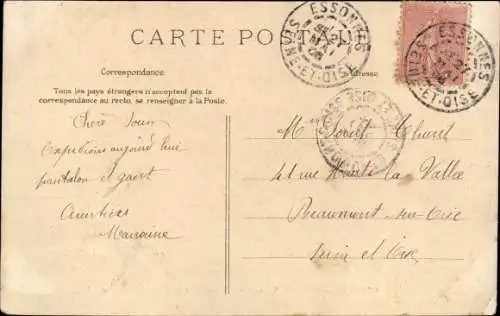 CARTE POSTALE
ESSONNES
SEINE-ET-OISE
ESSONNES
SEINE-ET-OISE
Correspondance
Adresse
Tous les pays étrangers n'acceptent pas la
correspondance au recto, se renseigner à la Poste.
Chère
expédions aujourd'hui
pantalon et
Amitiés
M
41 rue la Vallée
Beaumont sur Oise
Seine et Oise